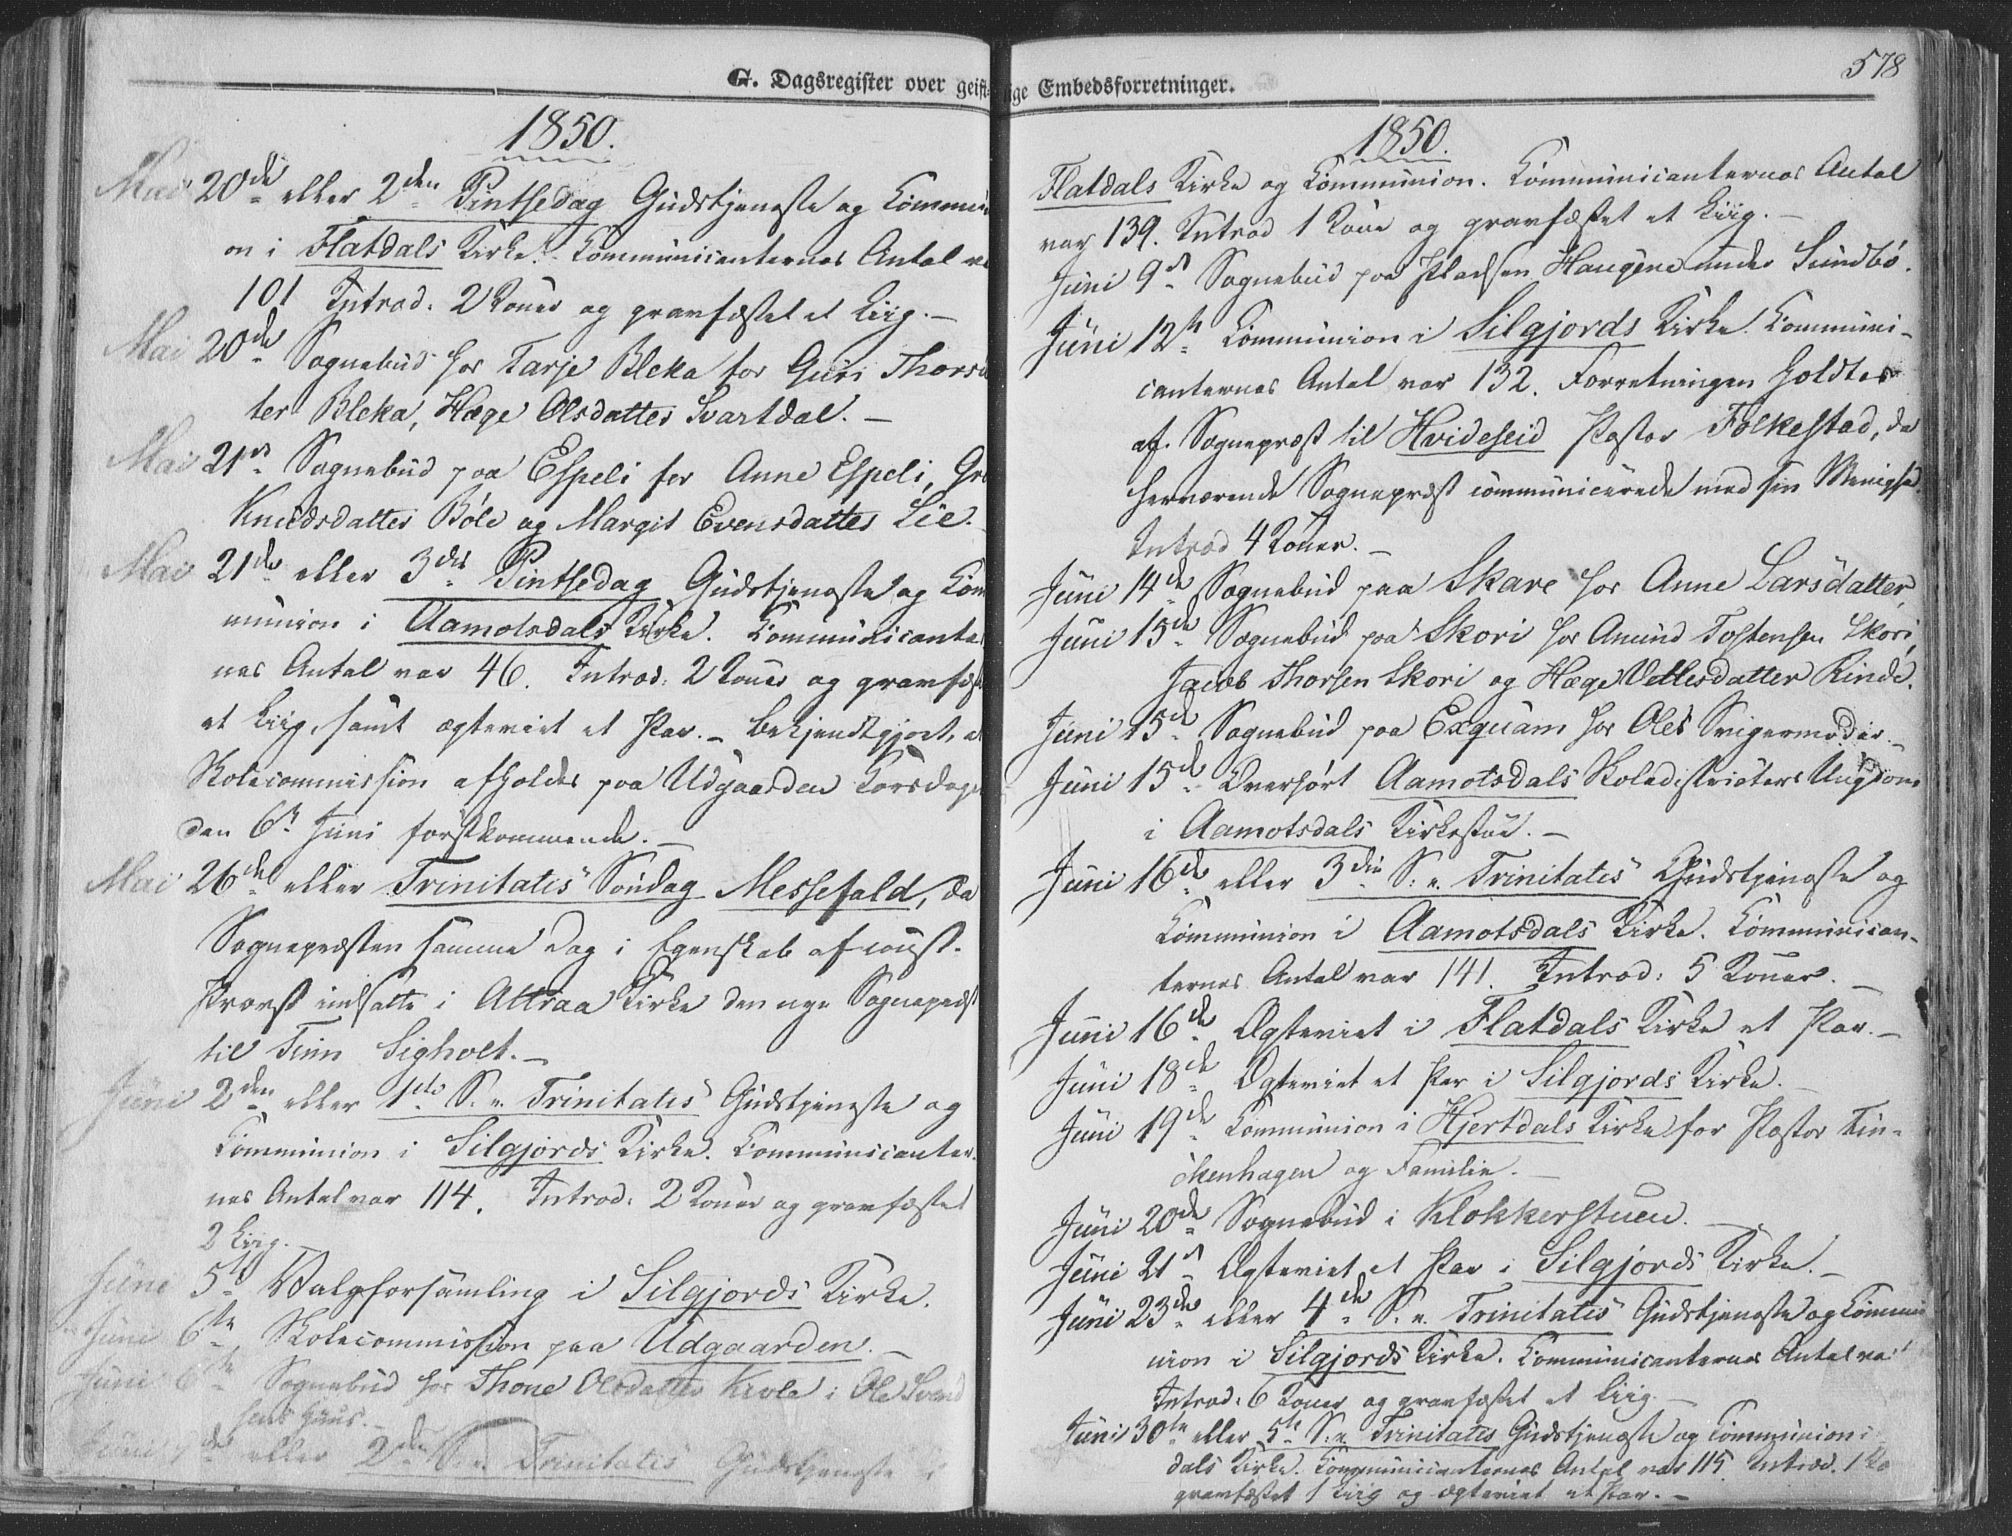 G. Dagsregister over geist-
1850.
Mai 20de eller 2den Pintsedag Gudstjeneste og Commun
on i Flatdals Kirke. Communicanternes Antal va
101 Introd. 2 Koner og gravfæstet et Liig. –
Mai 20de Sognebud hos Tarje Bleka for Guri Thorsd
ter Bleka, Hæge Olsdatter Svartdal. –
Mai 21de Sognebud paa Espeli for Anne Espeli, Gro
Knudsdatter Böle og Margit Evensdatter Lie.
Mai 21de eller 3die Pintsedag Gudstjeneste og Com
munion i Aamotsdals Kirke. Communicanter
nes Antal var 46. Introd: 2 Koner og gravfæst
et Liig, samt ægteviet et Par. – Bekjendtgjort, at
Skolecommission afholdes paa Udgaarden Torsdagen
den 6te Juni förstkommende. –
Mai 26de eller Trinitatis Söndag Messefald, da
Sognepræsten samme Dag i Egenskab af const.
Provst indsatte i Attraa Kirke den nye Sognepræst
til Tinn Sigholt. –
Juni 2den eller 1ste S. e. Trinitatis Gudstjeneste og
Communion i Silgjords Kirke. Communicanter-
nes Antal var 114. Introd: 2 Koner og gravfæstet
2 Liig. –
Juni 5te Valgforsamling i Silgjords Kirke.
Juni 6te Skolecommission paa Udgaarden. –
Juni 6te Sognebud hos Thone Olsdatter Kivle i Ole Svend
sens Huus. –
Juni 9de eller 2den S. e. Trinitatis Gudstjeneste i
lige Embedsforretninger.
578
1850.
Flatdals Kirke og Communion. Communicanternes Antal
var 139. Introd 1 Kone og gravfæstet et Liig. –
Juni 9de Sognebud paa Pladsen Haugene under Sundbö.
Juni 12te Communion i Silgjords Kirke. Communi-
canternes Antal var 132. Forretningen holdtes
af Sognepræst til Hvideseid Pastor Folkestad, da
herværende Sognepræst communicerede med sin Menighed.
Introd 4 Koner. –
Juni 14de Sognebud paa Skare hos Anne Larsdatter,
Juni 15de Sognebud paa Skori hos Amund Tostensen Skori,
Jacob Thorsen Skori og Hæge Vetlesdatter Rinde.
Juni 15de Sognebud paa Exquam hos Oles Svigermoder. –
Juni 15de Overhört Aamotsdals Skoledistricters Ungdom
i Aamotsdals Kirkestue. –
Juni 16de eller 3die S. e. Trinitatis Gudstjeneste og
Communion i Aamotsdals Kirke. Communican-
ternes Antal var 141. Introd: 5 Koner. –
Juni 16de Ægteviet i Flatdals Kirke et Par. –
Juni 18de Ægteviet et Par i Silgjords Kirke. –
Juni 19de Communion i Hjertdals Kirke for Pastor Fin-
ckenhagen og Familie. –
Juni 20de Sognebud i Klokkerstuen. –
Juni 21de Ægteviet et Par i Silgjords Kirke. –
Juni 23de eller 4de S. e. Trinitatis Gudstjeneste og Commu
nion i Silgjords Kirke. Communicanternes Antal var
Introd: 6 Koner og gravfæstet et Liig. –
Juni 30te eller 5te S. e. Trinitatis Gudstjeneste og Communion i
dals Kirke. Communicanternes Antal var 115. Introd. 1 Ko
gravfæstet 1 Liig og ægteviet et Par. –